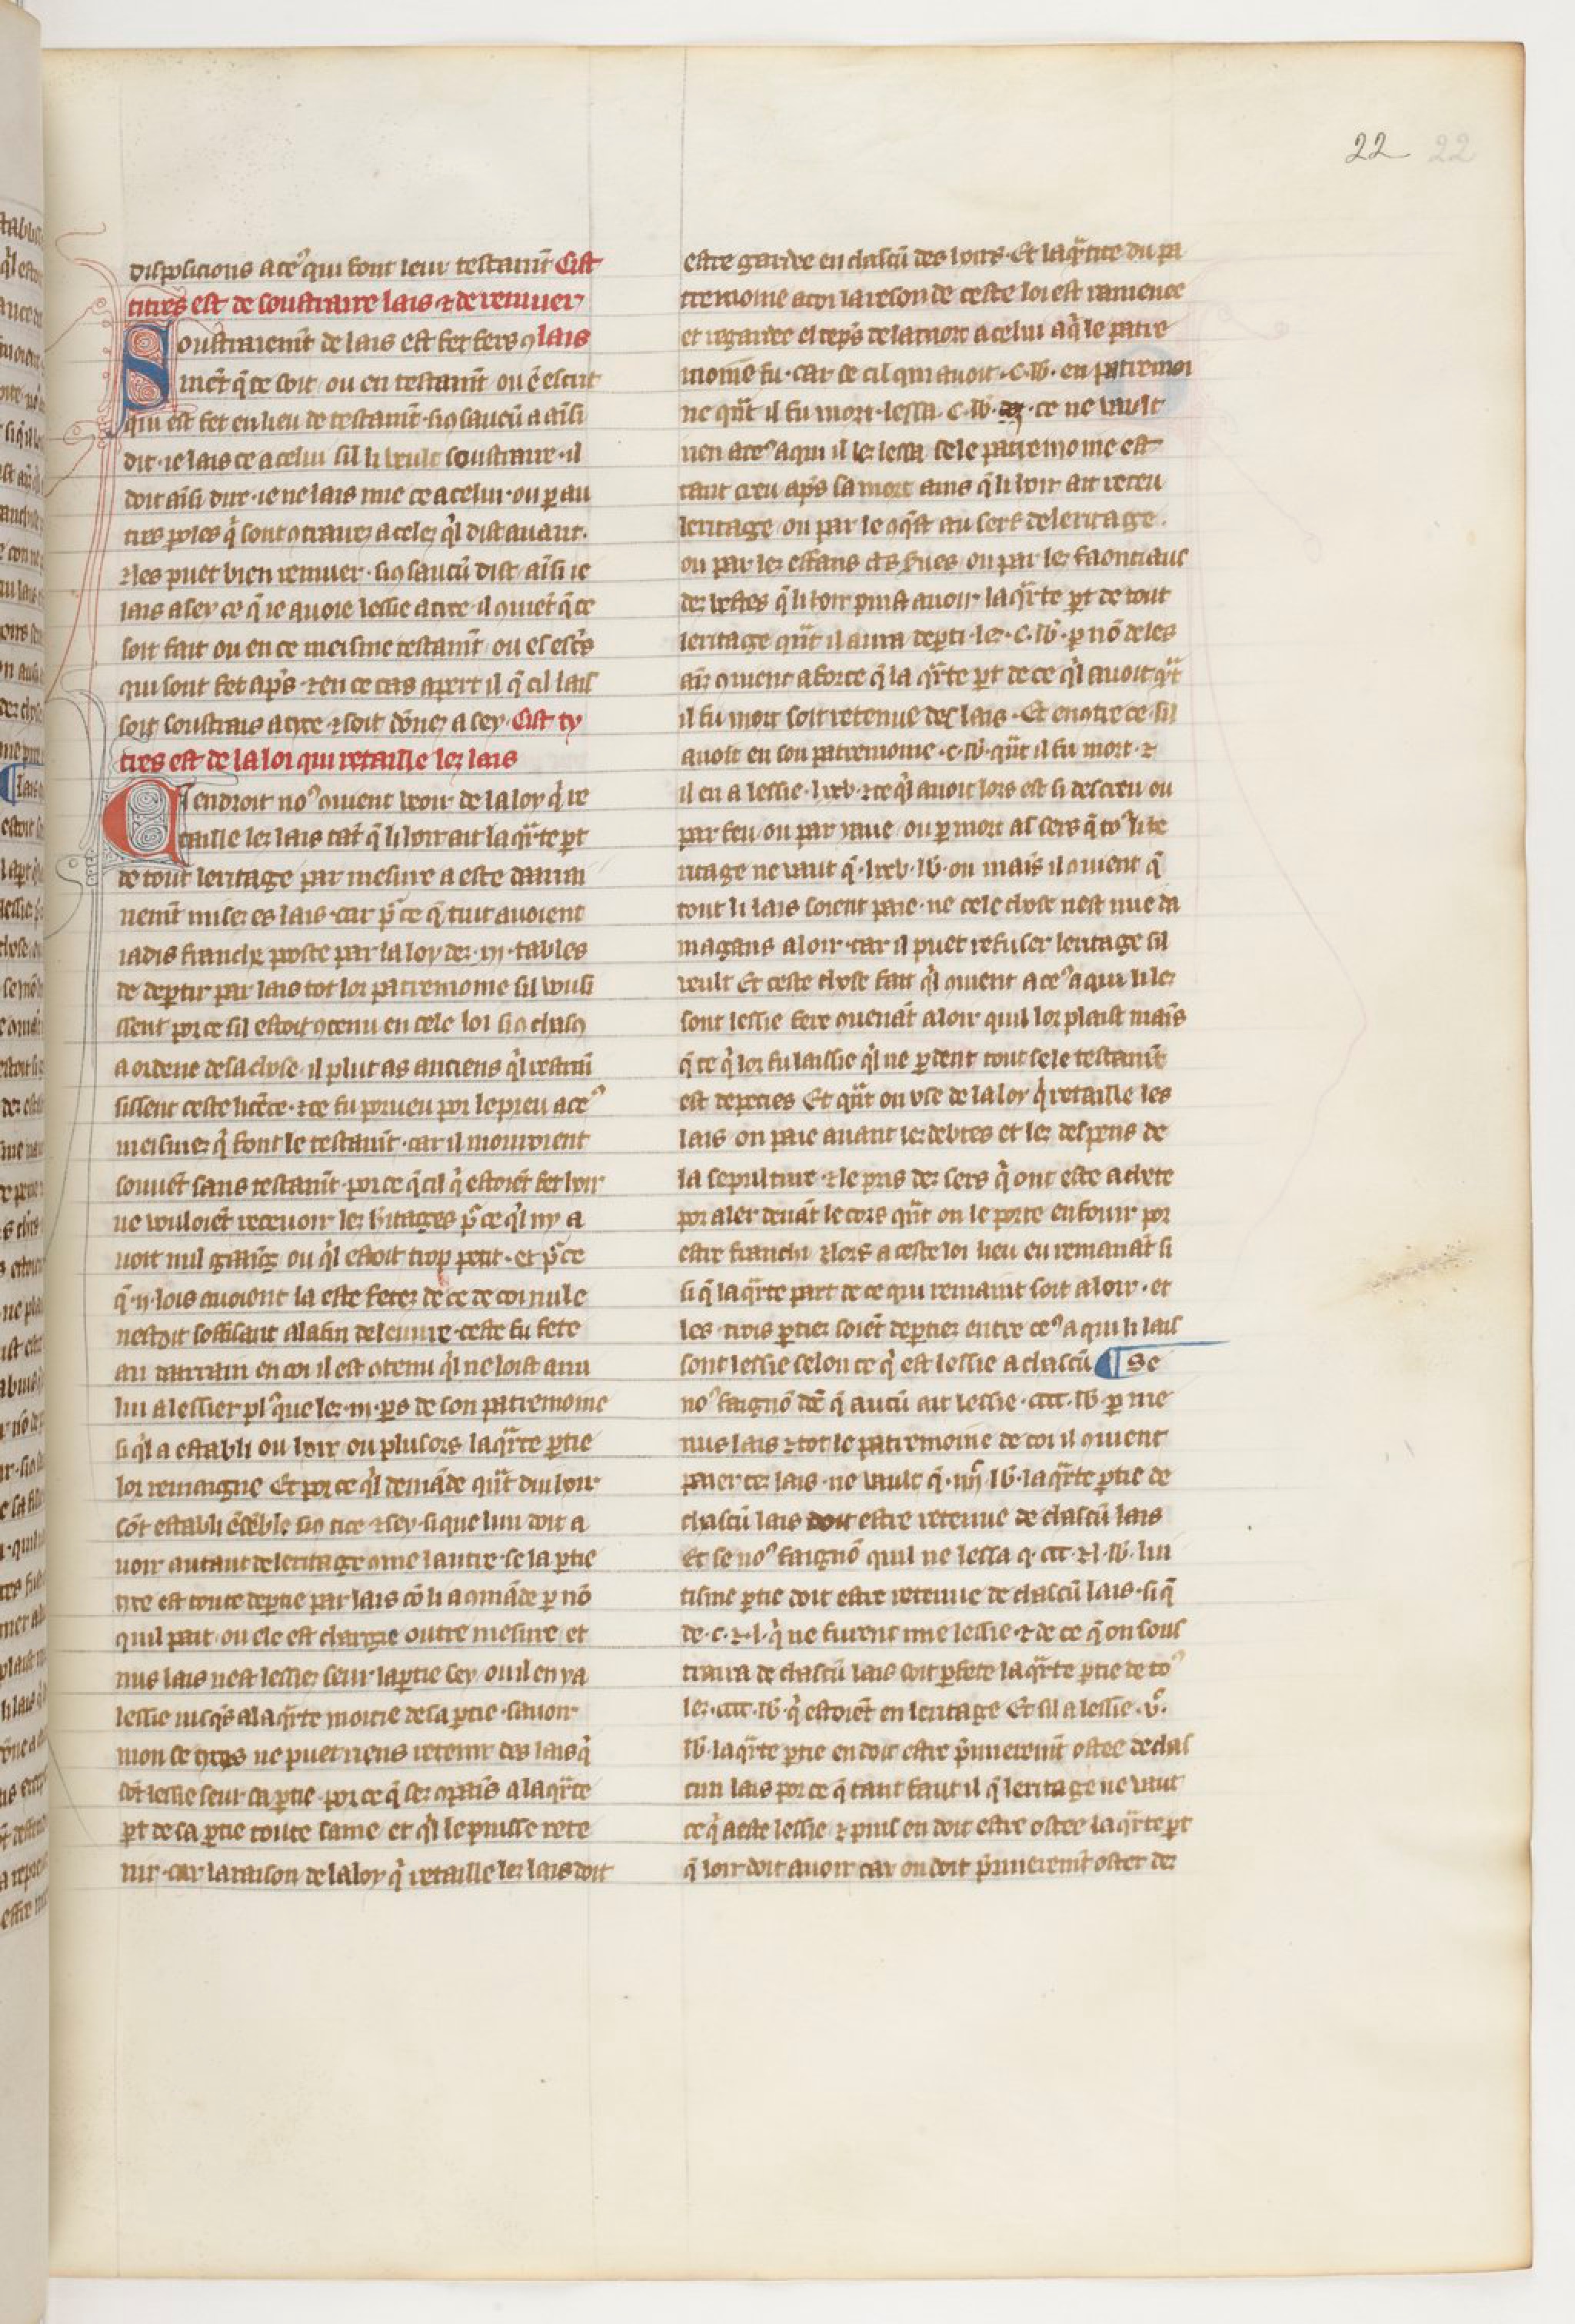 22 22
disposicions a ceꝰ qui font leur testamt̃ Cist
titres est de soustraire lais ⁊ de remuer
Soustraiemt̃ de lais est fet fers ꝯ lais
ment q̃ ce soit ou en testamt̃ ou ẽ escrit
qui est fet en lieu de testamt̃ si ꝯ saucũ a aĩsi
dit ie lais ce a celui sil li veult soustraire il
doit aĩsi dire ie ne lais mie ce a celui ou ꝑ au
tres ꝑoles q̃ sont ꝯtraires a celes q̃l dist auant
⁊ les puet bien remuer si ꝯ saucũ dist aĩsi ie
lais a sey ce q̃ ie auoie lessie a tite il ꝯuiẽt q̃ ce
soit fait ou en ce meisme testamt̃ ou es escs̃
qui sont fet aps̃ ⁊ en ce cas apert il q̃ cil lais
soit soustrais a tyte ⁊ soit dõnez a sey Cist ty
tres est de la loi qui retaille lez lais
Cendroit noꝰ ꝯuient veoir de la loy q̃ re
taille lez lais tãt q̃ li hoir ait la qr̃te ꝑt
de tout leritage par mesure a este darrai
nemt̃ mise es lais car pͬ ce q̃ tuit auoient
iadis franche poste par la loy dez xij tables
de deꝑtir par lais tot lor patremoine sil vousi
ssent por ce sil estoit ꝯtenu en cele loi si ꝯ chasꝯ
a ordene de sa chose il plut as anciens q̃l restrain
sissent ceste licẽce ⁊ ce fu porueu por le preu a ceꝰ
meismez q̃ font le testamt̃ car il mouroient
souuẽt sans testamt̃ por ce q̃ cil q̃ estoiẽt fet hoir
ne vouloiẽt receuoir lez hitages pͬ ce q̃l ny a
uoit nul gaaĩg ou q̃l estoit trop petit et pͬ ce
q̃ ij lois auoient la este fetez de ce de coi nule
nestoit soffisant a la fin de leuure ceste fu fete
au darrain en coi il est ꝯtenu q̃l ne loist a nu
lui a lessier plꝰ que lez iij ꝑs de son patremoine
si q̃l a establi ou hoir ou plusors la qr̃te ꝑtie
lor remaigne Et por ce q̃l demãde qũt dui hoir
sõt establi ẽsẽble si ꝯ tite ⁊ sey si que lun doit a
uoir autant de leritage ꝯme lautre se la ꝑtie
tite est toute deꝑtie par lais cõ li a ꝯmãde ꝑ nõ
quil pait ou ele est chargie outre mesure et
nus lais nest lessiez seur la ꝑtie sey ou il en ya
lessie iusq̃s a la qr̃te moitie de sa ꝑtie sauoir
mon se tytes ne puet riens retenir des lais q̃
sõt lessie seur sa ꝑtie por ce q̃ sez ꝯpaĩs a la qr̃te
ꝑt de sa ꝑtie toute saine et q̃l le puisse rete
nir car la raison de la loy q̃ retaille lez lais doit
estre gardee en chascũ des hoirs Et la qr̃tite du pa
tremoine a coi la reson de ceste loi est ramenee
et regardee el teps̃ de la mort a celui a q̃ le patre
moine fu car se cil qui auoit .c. lb. en patremoi
ne qũt il fu mort lessa .c. lb. ce ne vault
rien a ceꝰ a qui il lez lessa se le patremoine est
tant creu aps̃ sa mort ains q̃ li hoir ait receu
leritage ou par le ꝯq̃st au sers de leritage
ou par lez effans as fues ou par lez faonciaus
dez bestes q̃ li hoir puist auoir la qr̃te ꝑt de tout
leritage qũt il aura deꝑti lez .c. lb. ꝑ nõ de les
aĩz ꝯuient a force q̃ la qr̃te ꝑt de ce q̃l auoit qũt
il fu mort soit retenue des lais Et encõtre ce sil
auoit en son patremoine .c. lb. qũt il fu mort ⁊
il en a lessie .lxxv. ⁊ ce q̃l auoit lors est si descreu ou
par feu ou par yaue ou ꝑ mort as sers q̃ toꝰ li he
ritage ne vaut q̃ .lxxv. lb. ou mains il ꝯuient q̃
tout li lais soient paie ne cele chose nest mie da
magans a loir car il puet refuser leritage sil
veult Et ceste chose fait q̃l ꝯuient a ceꝰ a qui li lez
sont lessie fere ꝯuenãt a loir quil lor plaist maĩs
q̃ ce q̃ lor fu laissie q̃l ne ꝑdent tout se le testamt̃
est depecies Et qũt on vse de la loy q̃ retaille les
lais on paie auant lez debtes et lez despens de
la sepulture ⁊ le pris dez sers q̃ ont este achete
por aler deuãt le cors qũt on le porte enfouir por
estre franchi ⁊ lors a ceste loi lieu eu remanãt si
si q̃ la qr̃te part de ce qui remaint soit a loir et
les trois ꝑtiez soiẽt deꝑtiez entre ceꝰ a qui li lais
sont lessie selon ce q̃ est lessie a chascũ ¶ Se
noꝰ faignõ q̃ aucũ ait lessie .cccc. lb. ꝑ me
nus lais ⁊ tot le patremoine de coi il ꝯuient
paier cez lais ne vault q̃ .iiijͨ. lb. la qr̃te ꝑtie de
chascũ lais doit estre retenue de chascũ lais
Et se noꝰ faignõ quil ne lessa q̃ .ccc. ⁊ .l. lb. lui
tisme ꝑtie doit estre retenue de chascũ lais si q̃
de .c. ⁊ .l. q̃ ne furent mie lessie ⁊ de ce q̃ on sous
traira de chascũ lais soit ꝑfete la qr̃te ꝑtie de toꝰ
lez .cccc. lb. q̃ estoiẽt en leritage Et sil a lessie .vͨ.
lb. la qr̃te ꝑtie en doit estre p̃mieremt̃ ostee de chas
cun lais por ce q̃ tant faut il q̃ leritage ne vaut
ce q̃ a este lessie ⁊ puis en doit estre ostee la qr̃te ꝑt
q̃ loir doit auoir car on doit p̃mieremt̃ oster dez